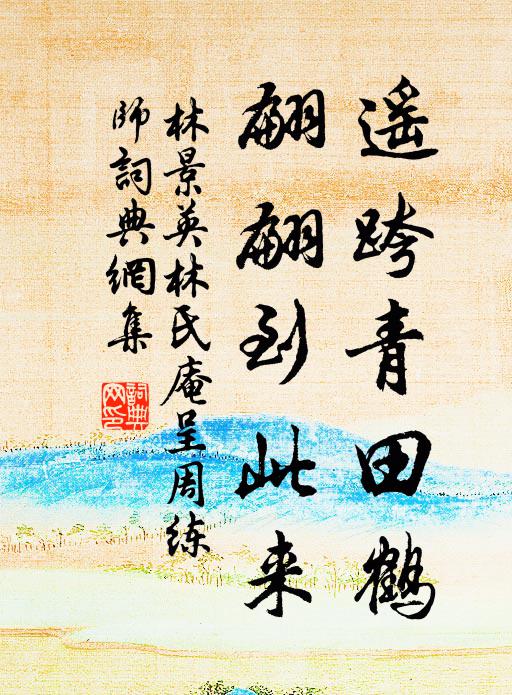 遥跨青田鹤
翩翩到此来
林景英林氏庵呈周练
师词典網集
詞典网印